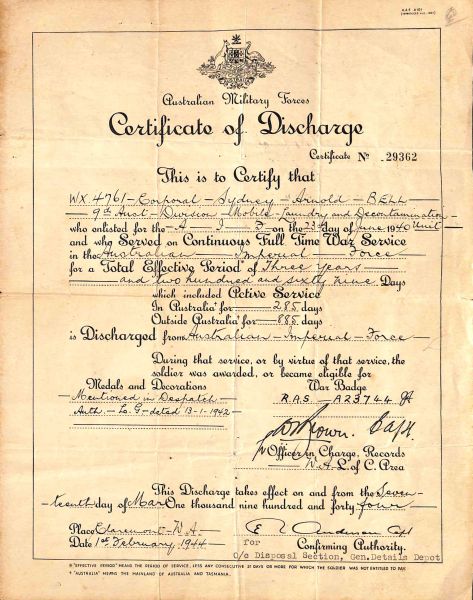 A.A.F. A101
Australian Military Forces
Certificate of Discharge
Certificate No 29362
This is to Certify that
WX 4761 - Corporal - Sydney - Arnold - BELL
9th Aust - Division - Mobile - Laundry and Decontamination - Unit
who enlisted for the A. I. F. on the 23rd day of June 1940
and who Served on Continuous Full Time War Service
in the Australian Imperial Force
for a Total Effective Period* of Three Years
and two hundred and sixty nine Days
which included Active Service
In Australia† for 285 days
Outside Australia† for 885 days
is Discharged from Australian - Imperial - Force
During that service, or by virtue of that service, the
soldier was awarded, or became eligible for
Medals and Decorations
Mentioned in Despatch
Auth. L. G. dated 13-1-1942
War Badge
R.A.S. - A23744
Brown. Capt.
Officer in Charge, Records
W.A. L. of C. Area
This Discharge takes effect on and from the Seven-
teenth day of Mar One thousand nine hundred and forty four
Place Claremont - W.A.
Date 1st February 1944
Anderson Capt
for Confirming Authority.
O/c Disposal Section, Gen. Details Depot
* "EFFECTIVE PERIOD" MEANS THE PERIOD OF SERVICE, LESS ANY CONSECUTIVE 21 DAYS OR MORE FOR WHICH THE SOLDIER WAS NOT ENTITLED TO PAY
† "AUSTRALIA" MEANS THE MAINLAND OF AUSTRALIA AND TASMANIA.